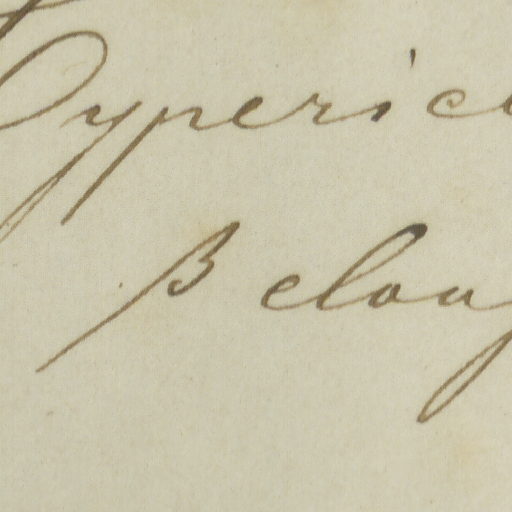 Hyperic
β elong